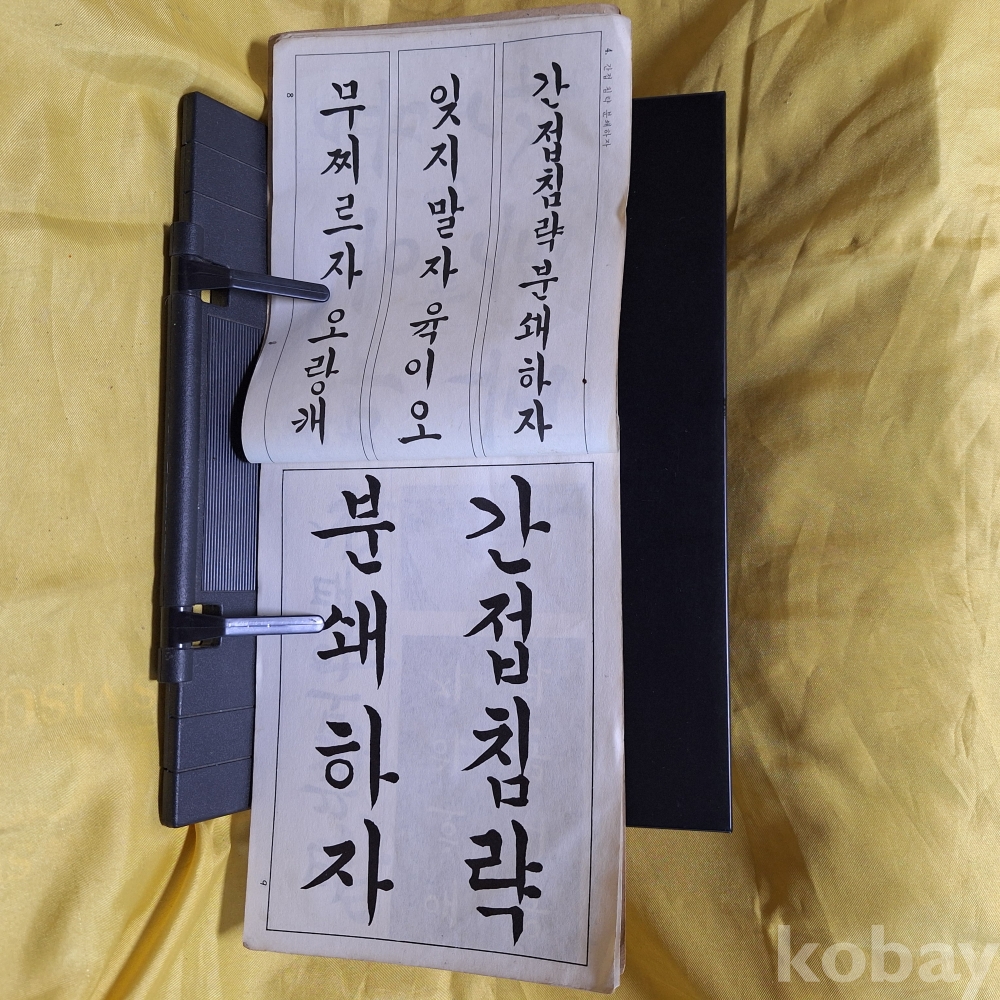 4. 간접 침략 분쇄하자
간접침략분쇄하자
잊지말자육이오
무찌르자오랑캐
8
간접침략
분쇄하자
9
kobay